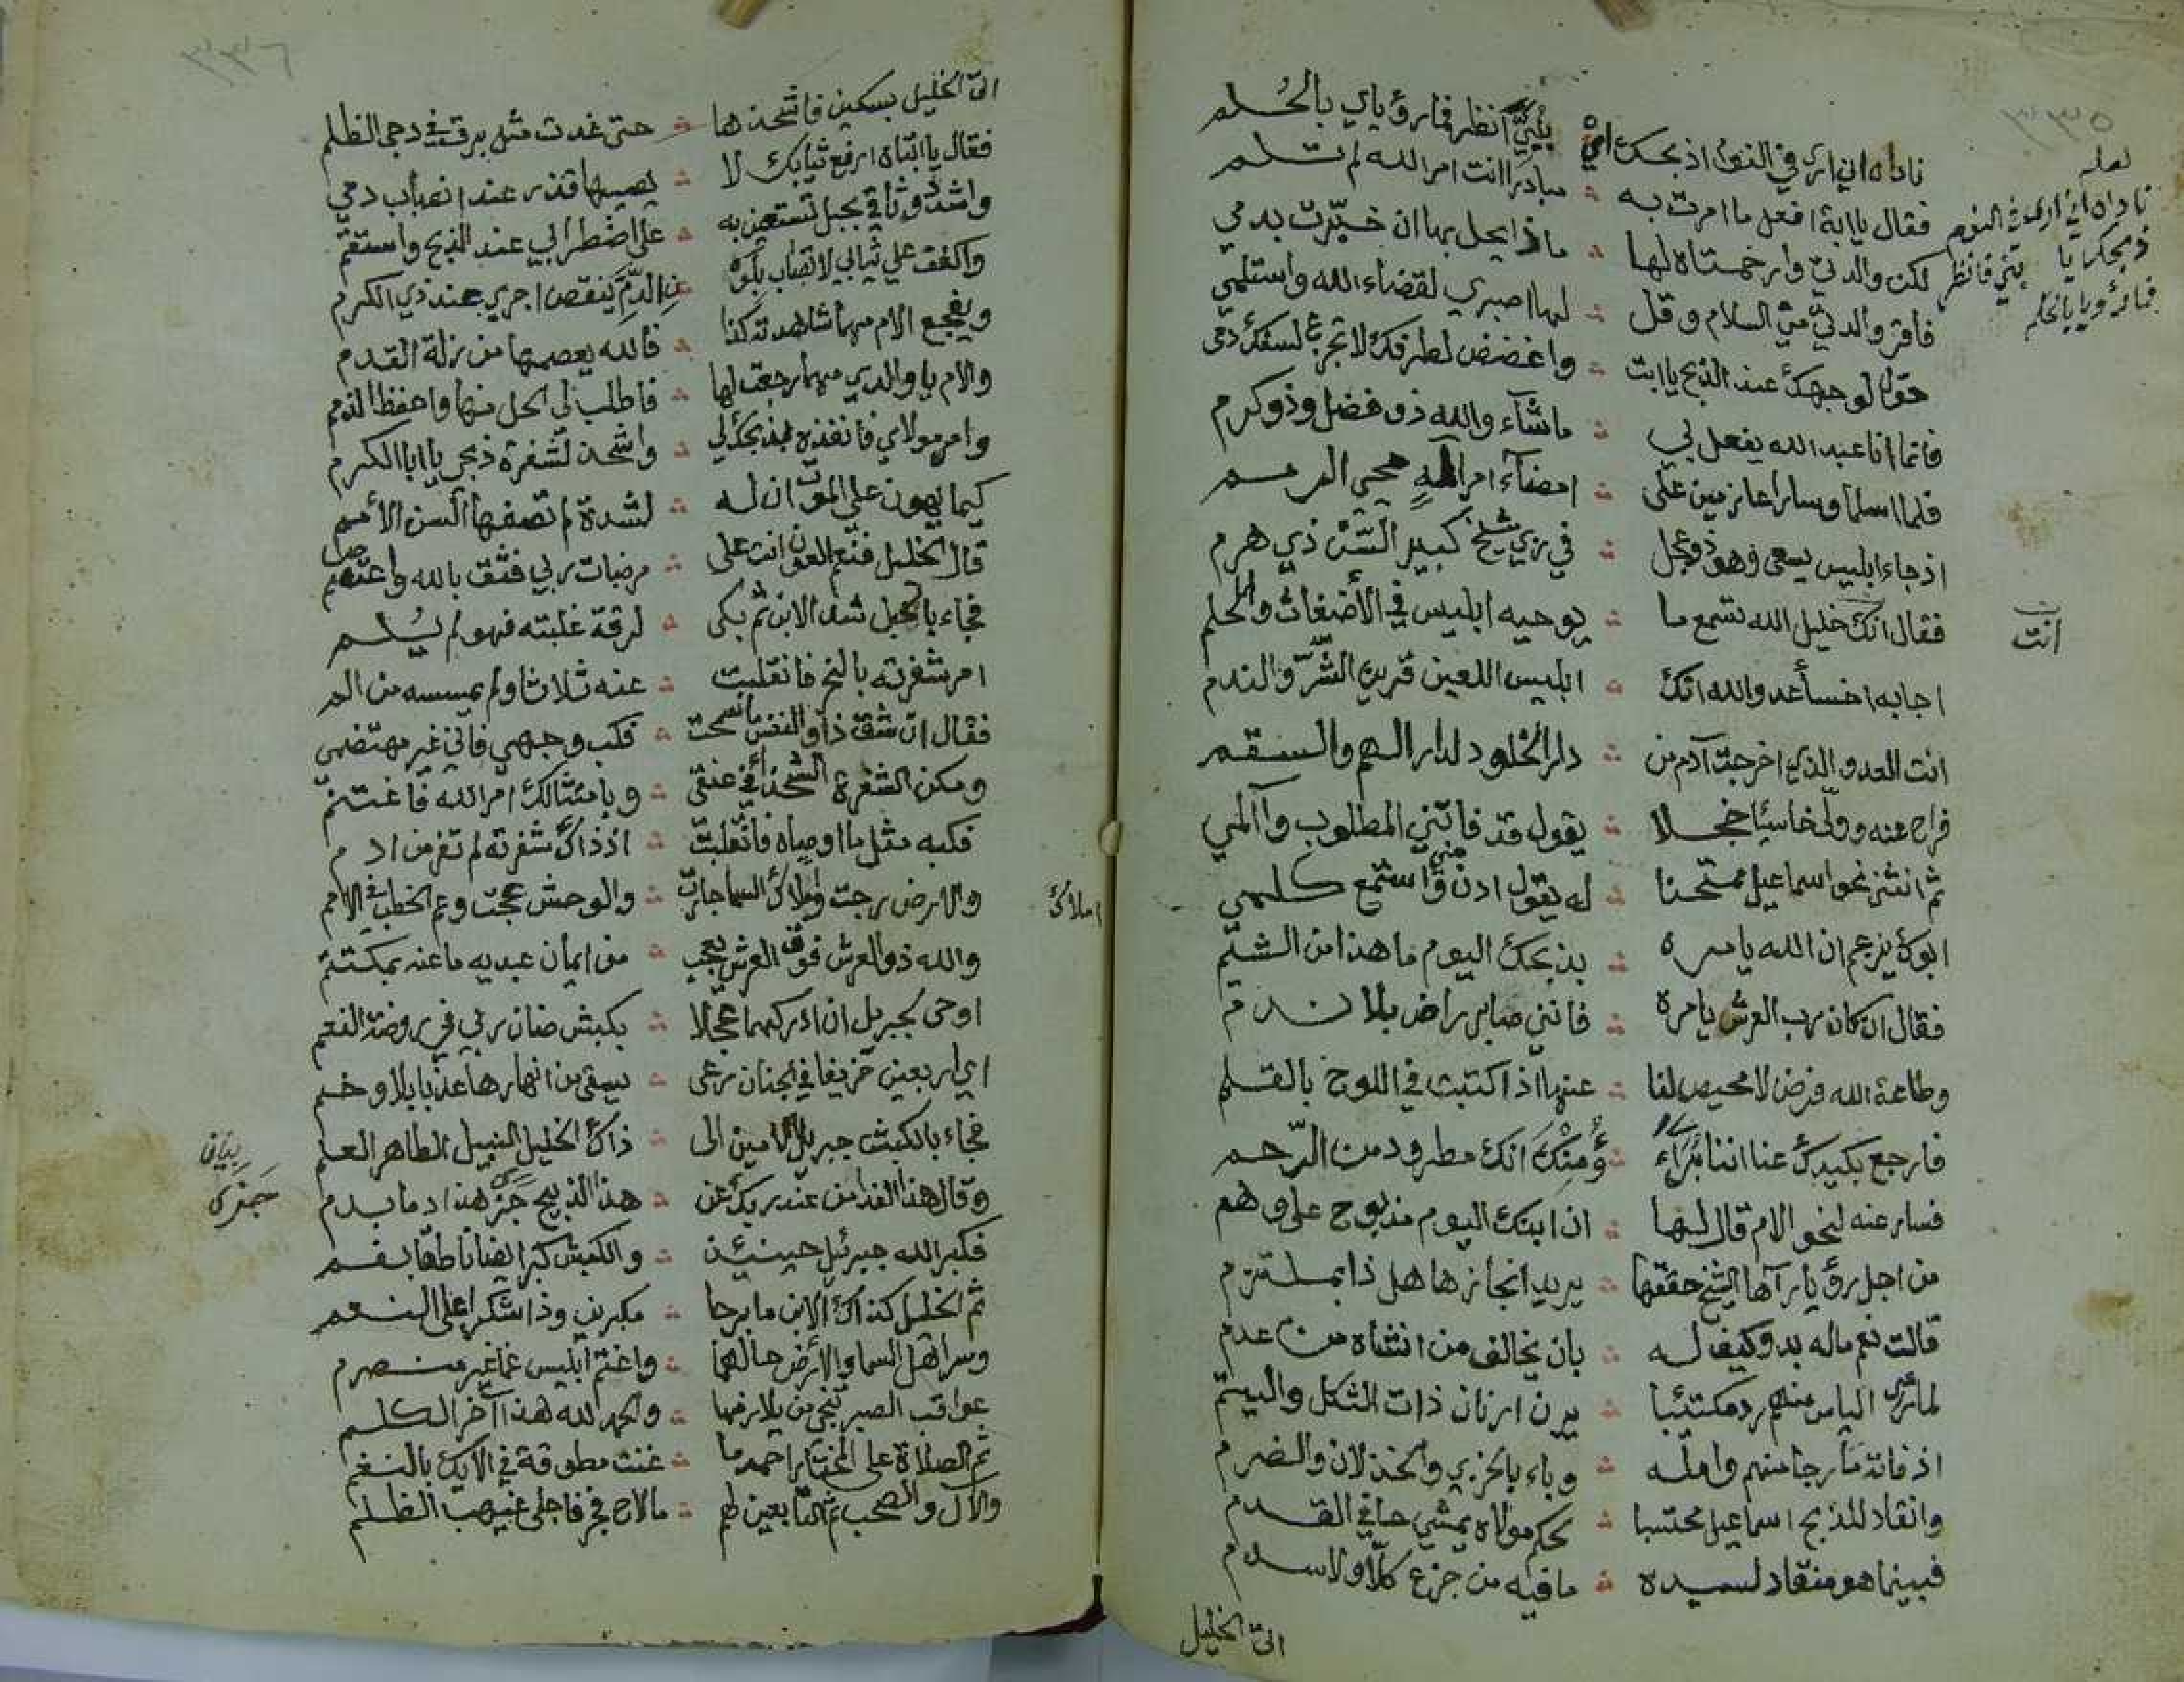 ٣٣٥
ناداه اني ارى في النوم اذبحك يا بني انظر فما رؤياي بالحُلم
فقال يا ابة افعل ما امرت به ∴ مبادرا انت امر الله لم تلم
لكن والدتي وارحمتاه لها ∴ ماذا يحل بها ان خبّرت بدمي
فاقر والدتي مني السلام وقل ∴ لها اصبري لقضاء الله واستلمي
حوّل لوجهك عند الذبح يا ابت ∴ واغضض لطرفك لا تجزع لسفك دمي
فانما انا عبد الله يفعل بي ∴ ما شآء والله ذو فضل وذو كرم
فلما اسلما وسارا عازمين على ∴ امضآء امر اله محيي الرمم
اذ جاء ابليس يسعى وهو ذو عجل ∴ في زي شيخ كبير السّن ذي هرم
فقال انك خليل الله تسمع ما ∴ يوحيه ابليس في الأضغاث والحلم
اجابه اخسأ عدو الله انك ∴ ابليس اللعين قرين الشّر والندم
انت العدو الذي اخرجت آدم من ∴ دار الخلود لدار الهم والسقم
فراح عنه وولّى خاسئا خجلا ∴ يقول قد فاتني المطلوب وآ ألمي
ثم انثنى نحو اسماعيل ممتحنا ∴ له يقول ادن مني واستمع كلمي
ابوك يزعم ان الله يامره ∴ بذبحك اليوم ما هذا من الشيم
فقال ان كان رب العرش يامره ∴ فانني صابر راض بلا ندم
وطاعة الله فرض لا محيص لنا ∴ عنها اذا كتبت في اللوح بالقلم
فارجع بكيدك عنا اننا بُرَآء ∴ ؤُمِنْكَ انك مطرود من الرّحم
فسار عنه لنحو الام قال لها ∴ ان ابنك اليوم مذبوح على وهم
من اجل رؤيا رآها الشيخ حققها ∴ يريد انجازها هل ذا بملتزم
قالت نعم ماله بد وكيف له ∴ بان يخالف من انشاه من عدم
لما رأى الياس منهم رد مكتئبا ∴ يرن ارنان ذات الثكل واليتم
اذ فاته ما رجا منهم وامله ∴ وباء بالخزي والخذلان والضرم
وانقاد للذبح اسماعيل محتسبا ∴ لحكم مولاه يمشي حافي القدم
فبينما هو منقاد لسيده ∴ ما فيه من جزع كلّا ولا سدم
اتى الخليل
لعله
ناداه اني ارى في النوم
ذبحك يا بني فانظر
فما رؤياي بالحلم
انت
٣٣٦
اتى الخليل بسكين فاشحذها ∴ حتى غدت مثل برق في دجى الظلم
فقال يا ابتاه ارفع ثيابك لا ∴ يصيبها قذر عند انصباب دمي
واشدد وثاقي بحبل تستعين به ∴ على اضطرابي عند الذبح واستقم
واكفف علي ثيابي لا تصاب بلوث ∴ من الدم ينقص اجري عند ذي الكرم
ويفجع الام مهما شاهدته كذا ∴ فالله يعصمها من زلة القدم
والام يا والدي مهما رجعت لها ∴ فاطلب لي الحل منها واحفظ الذمم
وامر مولاي فانفذه بذبحك لي ∴ واشحذ لشفرة ذبحي يا ابا الكرم
كيما يهون علي الموت ان له ∴ لشدة لم تصفها ألسن الأمم
قال الخليل فنعم العون انت على ∴ مرضات ربي فثق بالله واعتصم
فجاء بالحبل شد الابن ثم بكى ∴ لرقة غلبته فهو لم يُلم
امر شفرته بالنحر فانقلبت ∴ عنه ثلاثا ولم يمسسه من الم
فقال ان شق ذا والنفس ما سمحت ∴ فكب وجهي فاني غير مهتضم
ومكن الشفرة الشحذاء في عنقي ∴ وبامتثالك امر الله فاغتنم
فكبه مثل ما اوصاه فانقلبت ∴ اذ ذاك شفرته لم تفر من ادم
والارض رجت واملاك السما جارت ∴ والوحش عجت وعم الخطب في الامم
والله ذو العرش فوق العرش يعجب ∴ من ايمان عبديه ما عنه بمكتتم
اوحى لجبريل ان ادركهما عجلا ∴ بكبش ضان ربي في روضة النعم
اي اربعين خريفا في الجنان رعى ∴ يسقى من انهارها عذبا بلا وخم
فجاء بالكبش جبريل الامين الى ∴ ذاك الخليل النبيل الطاهر العلم
وقال هذا الفدا من عند ربك عن ∴ هذا الذبيح جزى هذا دما بدم
فكبر الله جبرئيل حينئذ ∴ والكبش كبر ايضا ناطقا بفم
ثم الخليل كذاك الابن ما برحا ∴ مكبرين وذا شكرا على النعم
وسر اهل السما والارض حالهما ∴ واغتم ابليس غما غير منصرم
عواقب الصبر تنجي من يلازمها ∴ والحمد لله هذا آخر الكلم
ثم الصلاة على المختار احمد ما ∴ غنت مطوقة في الايك بالنغم
والآل والصحب ثم التابعين لهم ∴ ما لاح فجر فاجلى غيهب الظلم
املاك
جزى